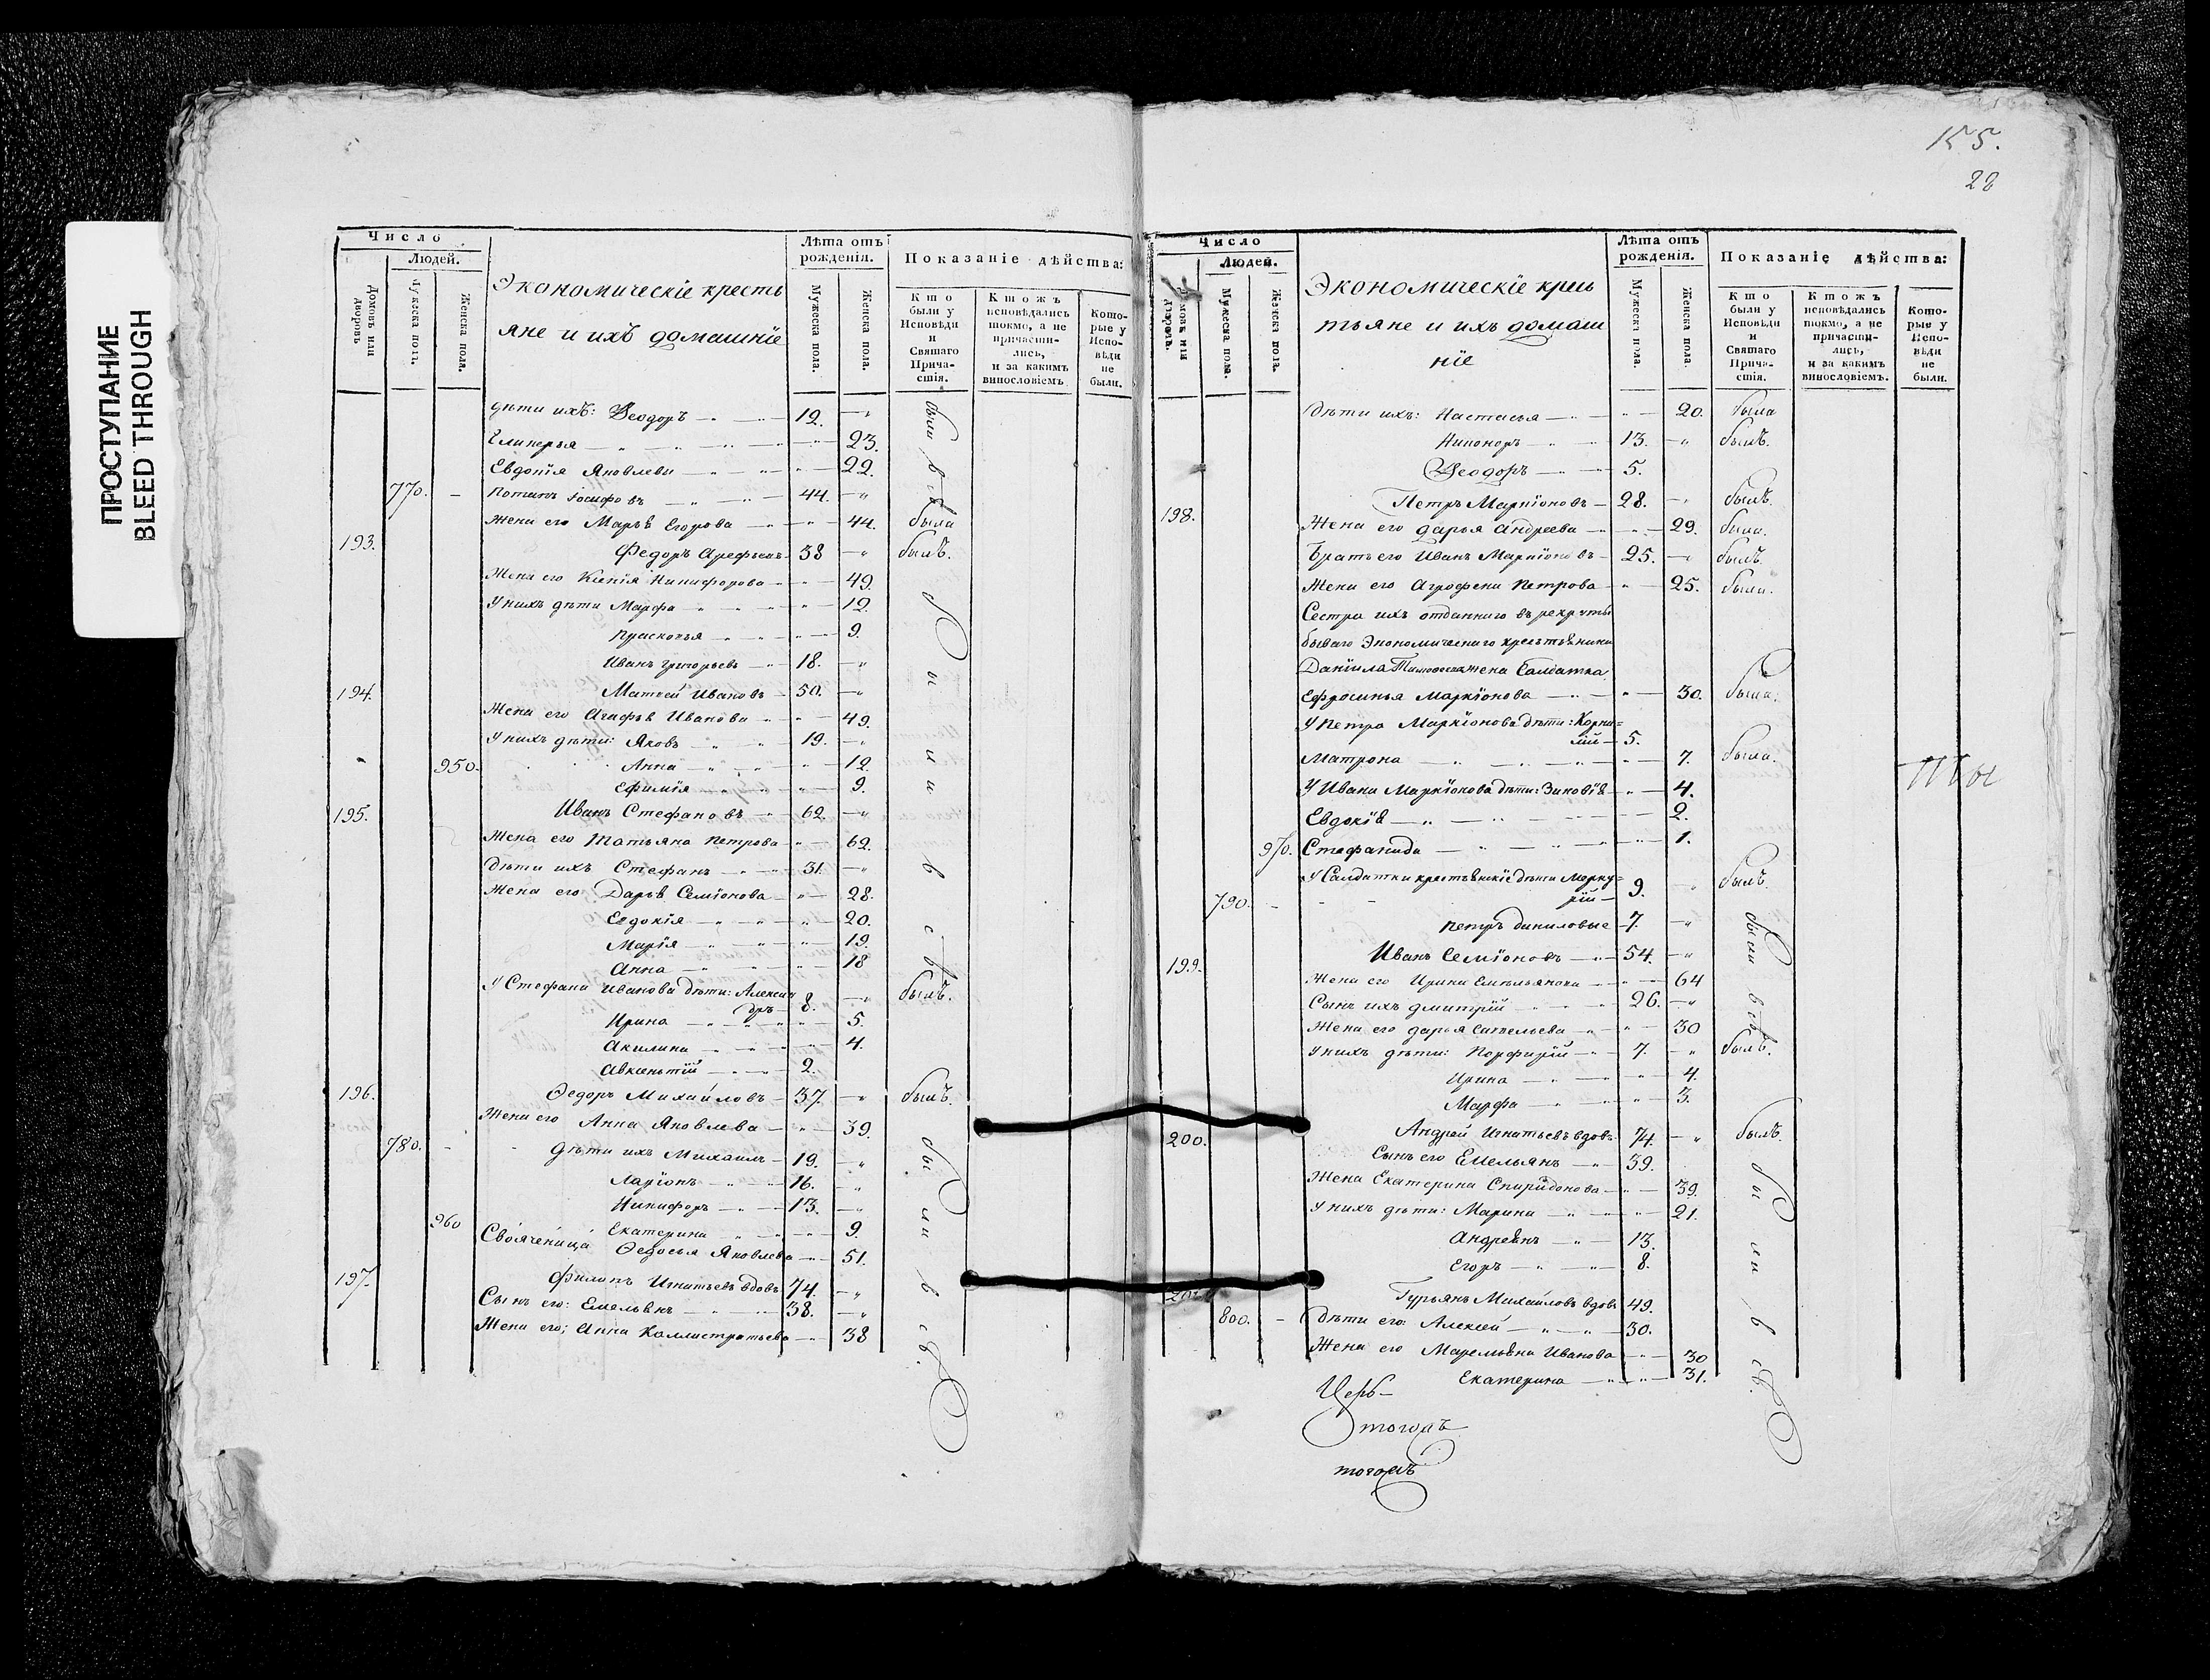 ПРОСТУПАНИЕ
BLEED THROUGH
Число
Людей.
Домовъ или дворовъ
Мужеска полъ.
Женска пола.
Экономическіе кресть
яне и ихъ домашніе
Лѣта отъ рожденія.
Мужеска пола.
Женска пола.
Показаніе дѣйства:
Кто были у Исповѣди и Святаго Прича-стія.
Ктожъ исповѣдались токмо, а не причасти-лись, и за какимъ винословіемъ.
Кото-рые у Испо-вѣди не были.
дѣти ихъ: Ѳеодоръ 12. были всѣ
23.
Евдокія Яковлева 22.
770. Потапъ Іосифовъ 44.
Жена его Марья Егорова 44. была
193. Федоръ Арефьевъ 38 былъ.
Жена его Ксенія Никифорова 49.
У нихъ дѣти Марфа 12.
Прасковья 9.
Иванъ Григорьевъ 18.
194. Матвей Ивановъ 50.
Жена его Агафья Иванова 49.
У нихъ дѣти: Яковъ 19.
950. Анна 12.
Ефимія 9.
195. Иванъ Стефановъ 62.
Жена его Татьяна Петрова 62.
Дѣти ихъ Стефанъ 31.
Жена его Дарья Семіонова 28.
Евдокія 20.
Марія 19.
Анна 18
У Стефана Иванова дѣти: Алексан
дръ 8. былъ.
Ирина 5.
Акилина 4.
Авксентій 2.
196. Ѳедоръ Михайловъ 37. былъ.
Жена его Анна Яковлева 39.
780. Дѣти ихъ Михаилъ 19.
Ларіонъ 16.
Никифоръ 13.
960 Екатерина 9.
Свояченица Ѳедосья Яковлева 51.
197. Филипъ Игнатьевъ вдовъ 74.
Сынъ его: Емельянъ 38.
Жена его; Анна Каллистратьева 38
были всѣ.
155.
28
Число
Людей.
Домовъ или дворовъ.
Мужеска пола.
Женска пола.
Экономическіе крес
тьяне и ихъ домаш
ніе
Лѣта отъ рожденія.
Мужеска пола.
Женска пола.
Показаніе дѣйства:
Кто были у Исповѣди и Святаго Прича-стія.
Ктожъ исповѣдались токмо, а не причасти-лись, и за какимъ винословіемъ.
Кото-рые у Испо-вѣди не были.
Дѣти ихъ: Настасья 20. была
Никоноръ 13. былъ.
Ѳеодоръ 5.
198. Петръ Маркіоновъ 28. былъ.
Жена его Дарья Андреева 29. была.
Братъ его Иванъ Маркіоновъ 25. былъ.
Жена его Агрофена Петрова 25. была.
Сестра ихъ отданнаго въ рекруты
бываго Экономическаго крестьянина
Даніила жена Салдатка
Ефросинья Маркіонова 30. была.
У Петра Маркіонова дѣти: Корни=
лій 5.
Матрона 7. была.
У Ивана Маркіонова дѣти: Зиновія 4.
Евдокія 2.
970. Стефанида 1.
У Салдатки крестьянскіе дѣти Мерку=
790. рій 9. былъ.
Петръ Даниловые 7.
199. Иванъ Семіоновъ 54. были всѣ
Жена его Ирина Емельянова 64
Сынъ ихъ Дмитрій 26.
Жена его Дарья Савельева 30
У нихъ дѣти: Порфирій 7. былъ.
Ирина 4.
Марфа 3.
200. Андрей Игнатьевъ вдовъ 74. былъ.
Сынъ его Емельянъ 39.
Жена Екатерина Спиридонова 39.
У нихъ дѣти: Марина 21.
Андреянъ 13.
Егоръ 8.
201. Гурьянъ Михайловъ вдовъ 49.
800. Дѣти его: Алексей 30.
Жена его Маремьяна Иванова 30
Екатерина 31.
были всѣ.